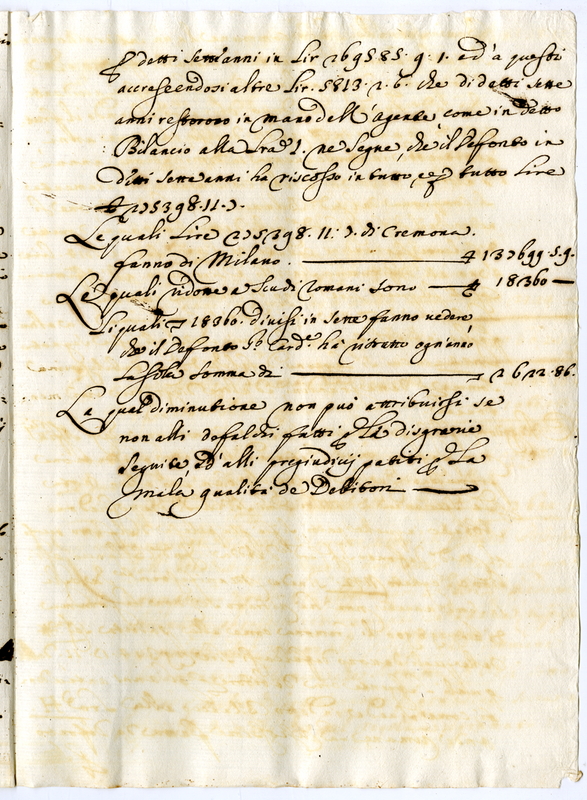 p detti sett'anni in Lir 169585. 9. 1. ed à questi
accrescendosi altre Lir. 5813. 2. 6. che di detti sette
anni restorono in mano dell'Agente, come in detto
Bilancio alla Lra L. ne segue, che il Defonto in
Ditti sette anni ha riscosso in tutto e p tutto Lire
175398. 11. 7.
Le quali Lire 175398. 11. 7. di Cremona
fanno di Milano. 137699. 5. 9.
Le quali ridotte a Scudi Romani sono 18360
Li quali 18360. divisi in sette fanno vedere,
che il Defonto Sr. Card.e hà ritratto ogn'anno
la sola somma di 2622. 86.
La qual diminutione non può attribuirsi se
non alli defalchi fatti p le disgrazie
seguite, ed' alli pregiudicij patiti p la
mala qualità de Debitori